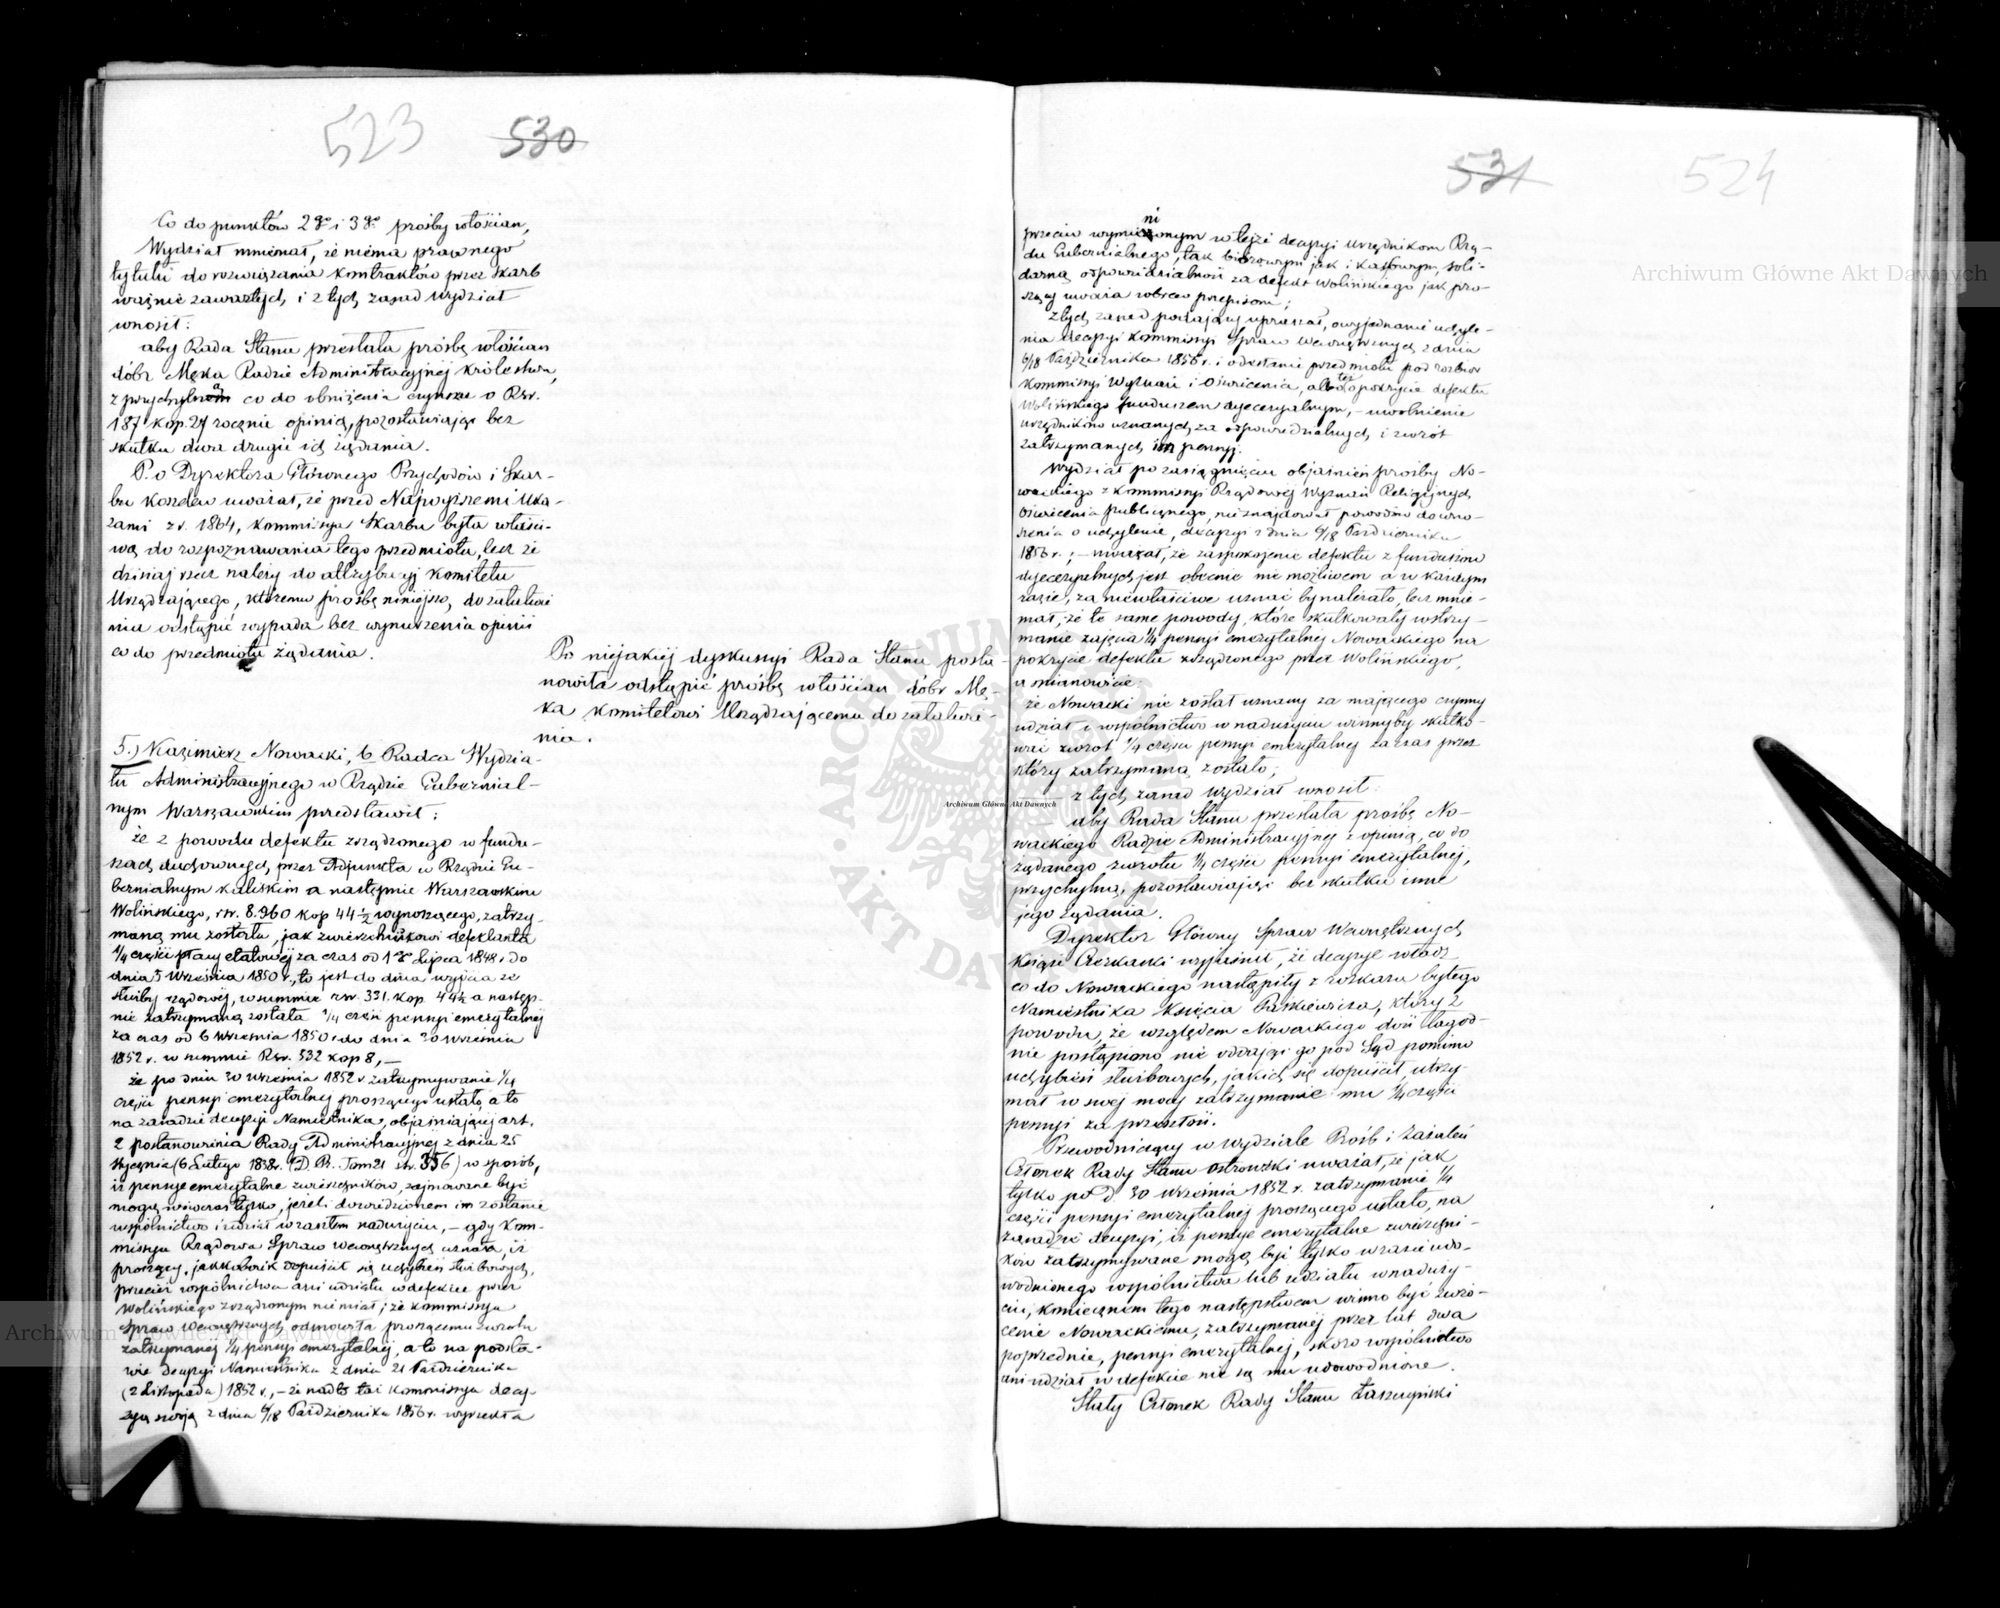 523 530
Co do punktów 2go i 3go prośby włościan,
Wydział mniemał, że niema prawnego
tytułu do rozwiązania kontraktów przez Skarb
ważnie zawartych i z tych zasad Wydział
wnosił:
aby Rada Stanu przesłała prośbę włościan
dóbr Męka Radzie Administracyjnej Królestwa,
z przychylną co do obniżenia czynszu o Rsr.
187 kop. 27 rocznie opinią, pozostawiając bez
skutku dwa drugie ich żądania.
P.o Dyrektora Głównego Przychodów i Skar-
bu Koszelew uważał, że przed Najwyższemi Uka-
zami z r. 1864, Kommissya Skarbu była właści-
wą do rozpoznawania tego przedmiotu, lecz że
dzisiaj rzecz należy do attrybucyj Komitetu
Urządzającego, któremu prośbę niniejszą, do załatwie
nia odstąpić wypada bez wynurzenia opinii
co do przedmiotu żądania.
Po niejakiéj dyskusyi Rada Stanu posta-
nowiła odstąpić prośbę włościan dóbr Mę-
ka Komitetowi Urządzającemu do załatwie-
nia.
5.) Kazimierz Nowacki, b. Radca Wydzia-
łu Administracyjnego w Rządzie Gubernial-
nym Warszawskim przedstawił:
że z powodu defektu zrządzonego w fundu-
szach duchownych, przez Adjunkta w Rządzie Gu-
bernialnym Kaliskim a następnie Warszawskim
Wolińskiego, rsr. 8.960 kop 44½ wynoszącego, zatrzy-
maną mu została, jak zwierzchnikowi defektanta
¼ części płacy etatowéj za czas od 1go Lipca 1848 r. do
dnia 5 Września 1850 r., to jest do dnia wyjścia ze
służby rządowéj, w summie rsr. 331. kop. 44½ a następ-
nie zatrzymaną została ¼ części pensyi emerytalnéj
za czas od 6 Września 1850 r. do dnia 30 Września
1852 r. w summie Rsr. 332 kop 8, —
że po dniu 30 Września 1852 r. zatrzymywanie ¼
części pensyi emerytalnéj proszącego ustało, a to
na zasadzie decyzyi Namiestnika, objaśniającéj art.
2 postanowienia Rady Administracyjnéj z dnia 25
Stycznia (6 Lutego 1838 r. (D. P. Tom 21 str. 356) w sposób,
iż pensye emerytalne zwierzchników, zajmowane być
mogą wówczas tylko, jeżeli dowiedzionem im zostanie
wspólnictwo i udział w zaszłem nadużyciu, — gdy Kom-
missya Rządowa Spraw Wewnętrznych uznała, iż
proszący, jakkolwiek dopuścił się uchybień służbowych,
przecież wspólnictwa ani udziału w defekcie przez
Wolińskiego zrządzonym nie miał; że Kommissya
Spraw Wewnętrznych odmówiła proszącemu zwrotu
zatrzymanéj ¼ pensyi emerytalnéj, a to na podsta-
wie decyzyi Namiestnika z dnia 21 Października
(2 Listopada) 1852 r., — że nadto taż Kommissya decy-
zyą swoją z dnia 6/18 Października 1856 r. wyrzekła
531 524
przeciw wymienionym w tejże decyzyi urzędnikom Rzą-
du Gubernialnego, tak biórowym jak i kassowym, soli-
darną odpowiedzialność za defekt Wolińskiego jak pro-
szący uważa wbrew przepisom;
z tych zasad podający upraszał, o wyjednanie uchyle-
nia decyzyi Kommissyi Spraw Wewnętrznych z dnia
6/18 Października 1856 r. i odesłanie przedmiotu pod rozbiór
Kommissyi Wyznań i Oświecenia, albo też o pokrycie defektu
Wolińskiego funduszem dyecezyalnym, — uwolnienie
urzędników uznanych za odpowiedzialnych i zwrot
zatrzymanych im pensyj.
Wydział po zasiągnięciu objaśnień prośby No-
wackiego z Kommissyi Rządowéj Wyznań Religijnych
Oświecenia publicznego, nie znajdował powodów do wno-
szenia o uchylenie, decyzyi z dnia 6/18 Października
1856 r.; — uważał, że zaspokojenie defektu z funduszów
dyecezyalnych jest obecnie nie możliwem a w każdym
razie, za niewłaściwe uznać by należało, lecz mnie-
mał, że te same powody, które skutkowały wstrzy-
manie zajęcia ¼ pensyi emerytalnéj Nowackiego na
pokrycie defektu zrządzonego przez Wolińskiego,
a mianowicie:
że Nowacki nie został uznany za mającego czynny
udział i wspólnictwo w nadużyciu winnyby skutko-
wać zwrot ¼ części pensyi emerytalnéj za czas przez
który zatrzymaną została;
z tych zasad Wydział wnosił:
aby Rada Stanu przesłała prośbę No-
wackiego Radzie Administracyjnéj z opinią, co do
żądanego zwrotu ¼ części pensyi emerytalnéj,
przychylną, pozostawiając bez skutku inne
jego żądania.
Dyrektor Główny Spraw Wewnętrznych
Książe Czerkaski wyjaśnił, że decyzye władz
co do Nowackiego nastąpiły z rozkazu byłego
Namiestnika Księcia Paskiewicza, który z
powodu, że względem Nowackiego dość łagod-
nie postąpiono nie oddając go pod Sąd pomimo
uchybień służbowych, jakich się dopuścił, utrzy-
mał w swej mocy zatrzymanie mu ¼ części
pensyi za przeszłość.
Przewodniczący w Wydziale Próśb i Zażaleń
Członek Rady Stanu Ostrowski uważał, że jak
tylko po d. 30 Września 1852 r. zatrzymanie ¼
części pensyi emerytalnéj proszącego ustało, na
zasadzie decyzyi, iż pensye emerytalne zwierzchni-
ków zatrzymywane mogą być tylko w razie udo-
wodnionego wspólnictwa lub udziału w naduży-
ciu, koniecznem tego następstwem winno być zwró-
cenie Nowackiemu, zatrzymanéj przez lat dwa
poprzednie, pensyi emerytalnéj, skoro wspólnictwo
ani udział w defekcie nie są mu udowodnione.
Stały Członek Rady Stanu Łaszczyński
Archiwum Główne Akt Dawnych
Archiwum Główne Akt Dawnych
Archiwum Główne Akt Dawnych
ARCHIWUM
AKT DAW